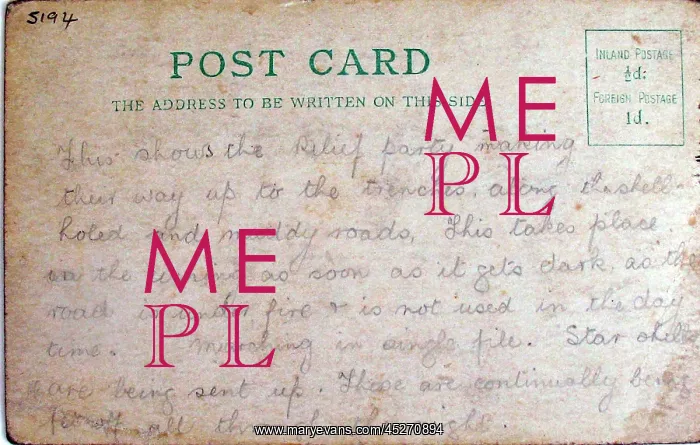 5194
POST CARD
THE ADDRESS TO BE WRITTEN ON THIS SIDE
INLAND POSTAGE
½d:
FOREIGN POSTAGE
1d.
This shows the Relief party making
their way up to the trenches, along the shell-
holed and muddy roads, This takes place
in the evening as soon as it gets dark, as the
road is under fire & is not used in the day
time. Marching in single file. Star shells
are being sent up. These are continually being
all through the night.
ME
PL
ME
PL
www.maryevans.com/45270894